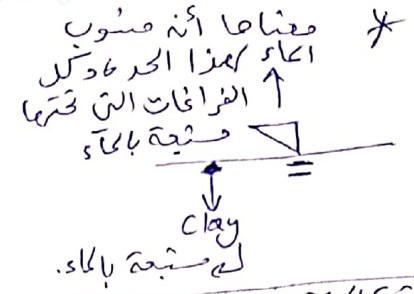 * معناها أنه منسوب
الماء لهذا الحد وكل
الفراغات التي تحتها
مشبعة بالماء
Clay
مشبعة بالماء.